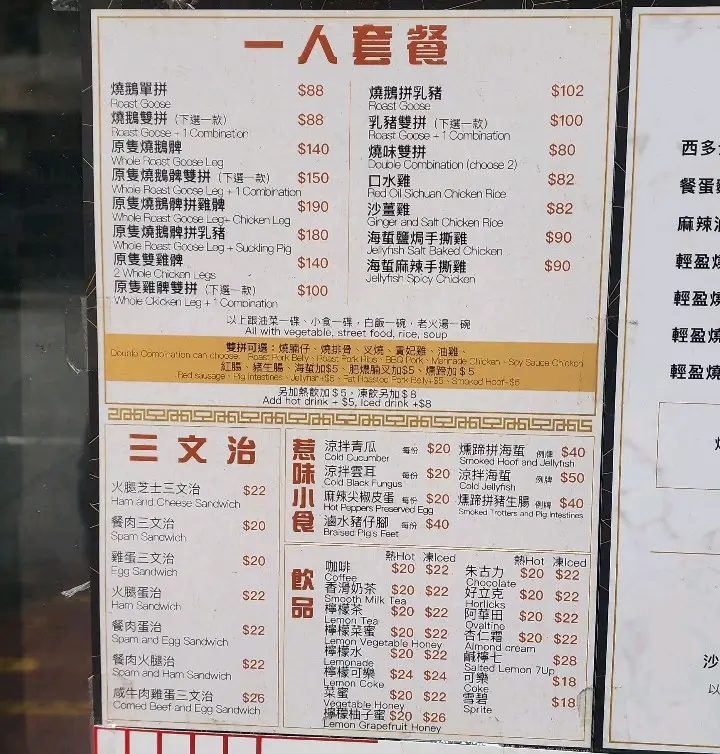 一人套餐
燒鵝單拼 $88
Roast Goose
燒鵝雙拼（下選一款） $88
Roast Goose + 1 Combination
原隻燒鵝髀 $140
Whole Roast Goose Leg
原隻燒鵝髀雙拼（下選一款） $150
Whole Roast Goose Leg + 1 Combination
原隻燒鵝髀拼雞髀 $190
Whole Roast Goose Leg+ Chicken Leg
原隻燒鵝髀拼乳豬 $180
Whole Roast Goose Leg + Suckling Pig
原隻雙雞髀 $140
2 Whole Chicken Legs
原隻雞髀雙拼（下選一款） $100
Whole Ckicken Leg + 1 Combination
燒鵝拼乳豬 $102
Roast Goose
乳豬雙拼（下選一款） $100
Roast Goose + 1 Combination
燒味雙拼 $80
Double Combination (choose 2)
口水雞 $82
Red Oil Sichuan Chicken Rice
沙薑雞 $82
Ginger and Salt Chicken Rice
海蜇鹽焗手撕雞 $90
Jellyfish Salt Baked Chicken
海蜇麻辣手撕雞 $90
Jellyfish Spicy Chicken
以上跟油菜一碟、小食一碟，白飯一碗，老火湯一碗
All with vegetable, street food, rice, soup
雙拼可選：燒腩仔、燒排骨、叉燒、貴妃雞、油雞、
Double Combination can choose: Roast Pork Belly、Roast Pork Ribs、BBQ Pork、Marinade Chicken、Soy Sauce Chicken
紅腸、豬生腸、海蜇加$5、肥燶腩叉加$5、燻蹄加$5
Red sausage、Pig Intestines、Jellyfish+$5、Fat Roasted Pork Belly+$5、Smoked Hoof+$5
另加熱飲加$5，凍飲另加$8
Add hot drink + $5, Iced drink +$8
三文治
火腿芝士三文治 $22
Ham and Cheese Sandwich
餐肉三文治 $20
Spam Sandwich
雞蛋三文治 $20
Egg Sandwich
火腿蛋治 $22
Ham Sandwich
餐肉蛋治 $22
Spam and Egg Sandwich
餐肉火腿治 $22
Spam and Ham Sandwich
咸牛肉雞蛋三文治 $26
Corned Beef and Egg Sandwich
惹味小食
涼拌青瓜 每份 $20
Cold Cucumber
涼拌雲耳 每份 $20
Cold Black Fungus
麻辣尖椒皮蛋 每份 $20
Hot Peppers Preserved Egg
滷水豬仔腳 每份 $40
Braised Pig's Feet
燻蹄拼海蜇 例牌 $40
Smoked Hoof and Jellyfish
涼拌海蜇 例牌 $50
Cold Jellyfish
燻蹄拼豬生腸 例牌 $40
Smoked Trotters and Pig Intestines
飲品
熱Hot 凍Iced
咖啡 $20 $22
Coffee
香滑奶茶 $20 $22
Smooth Milk Tea
檸檬茶 $20 $22
Lemon Tea
檸檬菜蜜 $20 $22
Lemon Vegetable Honey
檸檬水 $20 $22
Lemonade
檸檬可樂 $24 $24
Lemon Coke
菜蜜 $20 $22
Vegetable Honey
檸檬柚子蜜 $20 $26
Lemon Grapefruit Honey
熱Hot 凍Iced
朱古力 $20 $22
Chocolate
好立克 $20 $22
Horlicks
阿華田 $20 $22
Ovaltine
杏仁霜 $20 $22
Almond cream
鹹檸七 $28
Salted Lemon 7Up
可樂 $18
Coke
雪碧 $18
Sprite
西多
餐蛋
麻辣
輕盈
輕盈
輕盈
輕盈
沙
以